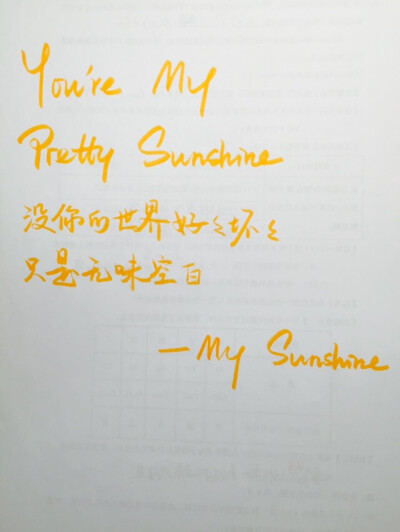 You're My
Pretty Sunshine
没你的世界好好坏坏
只是无味空白
—My Sunshine